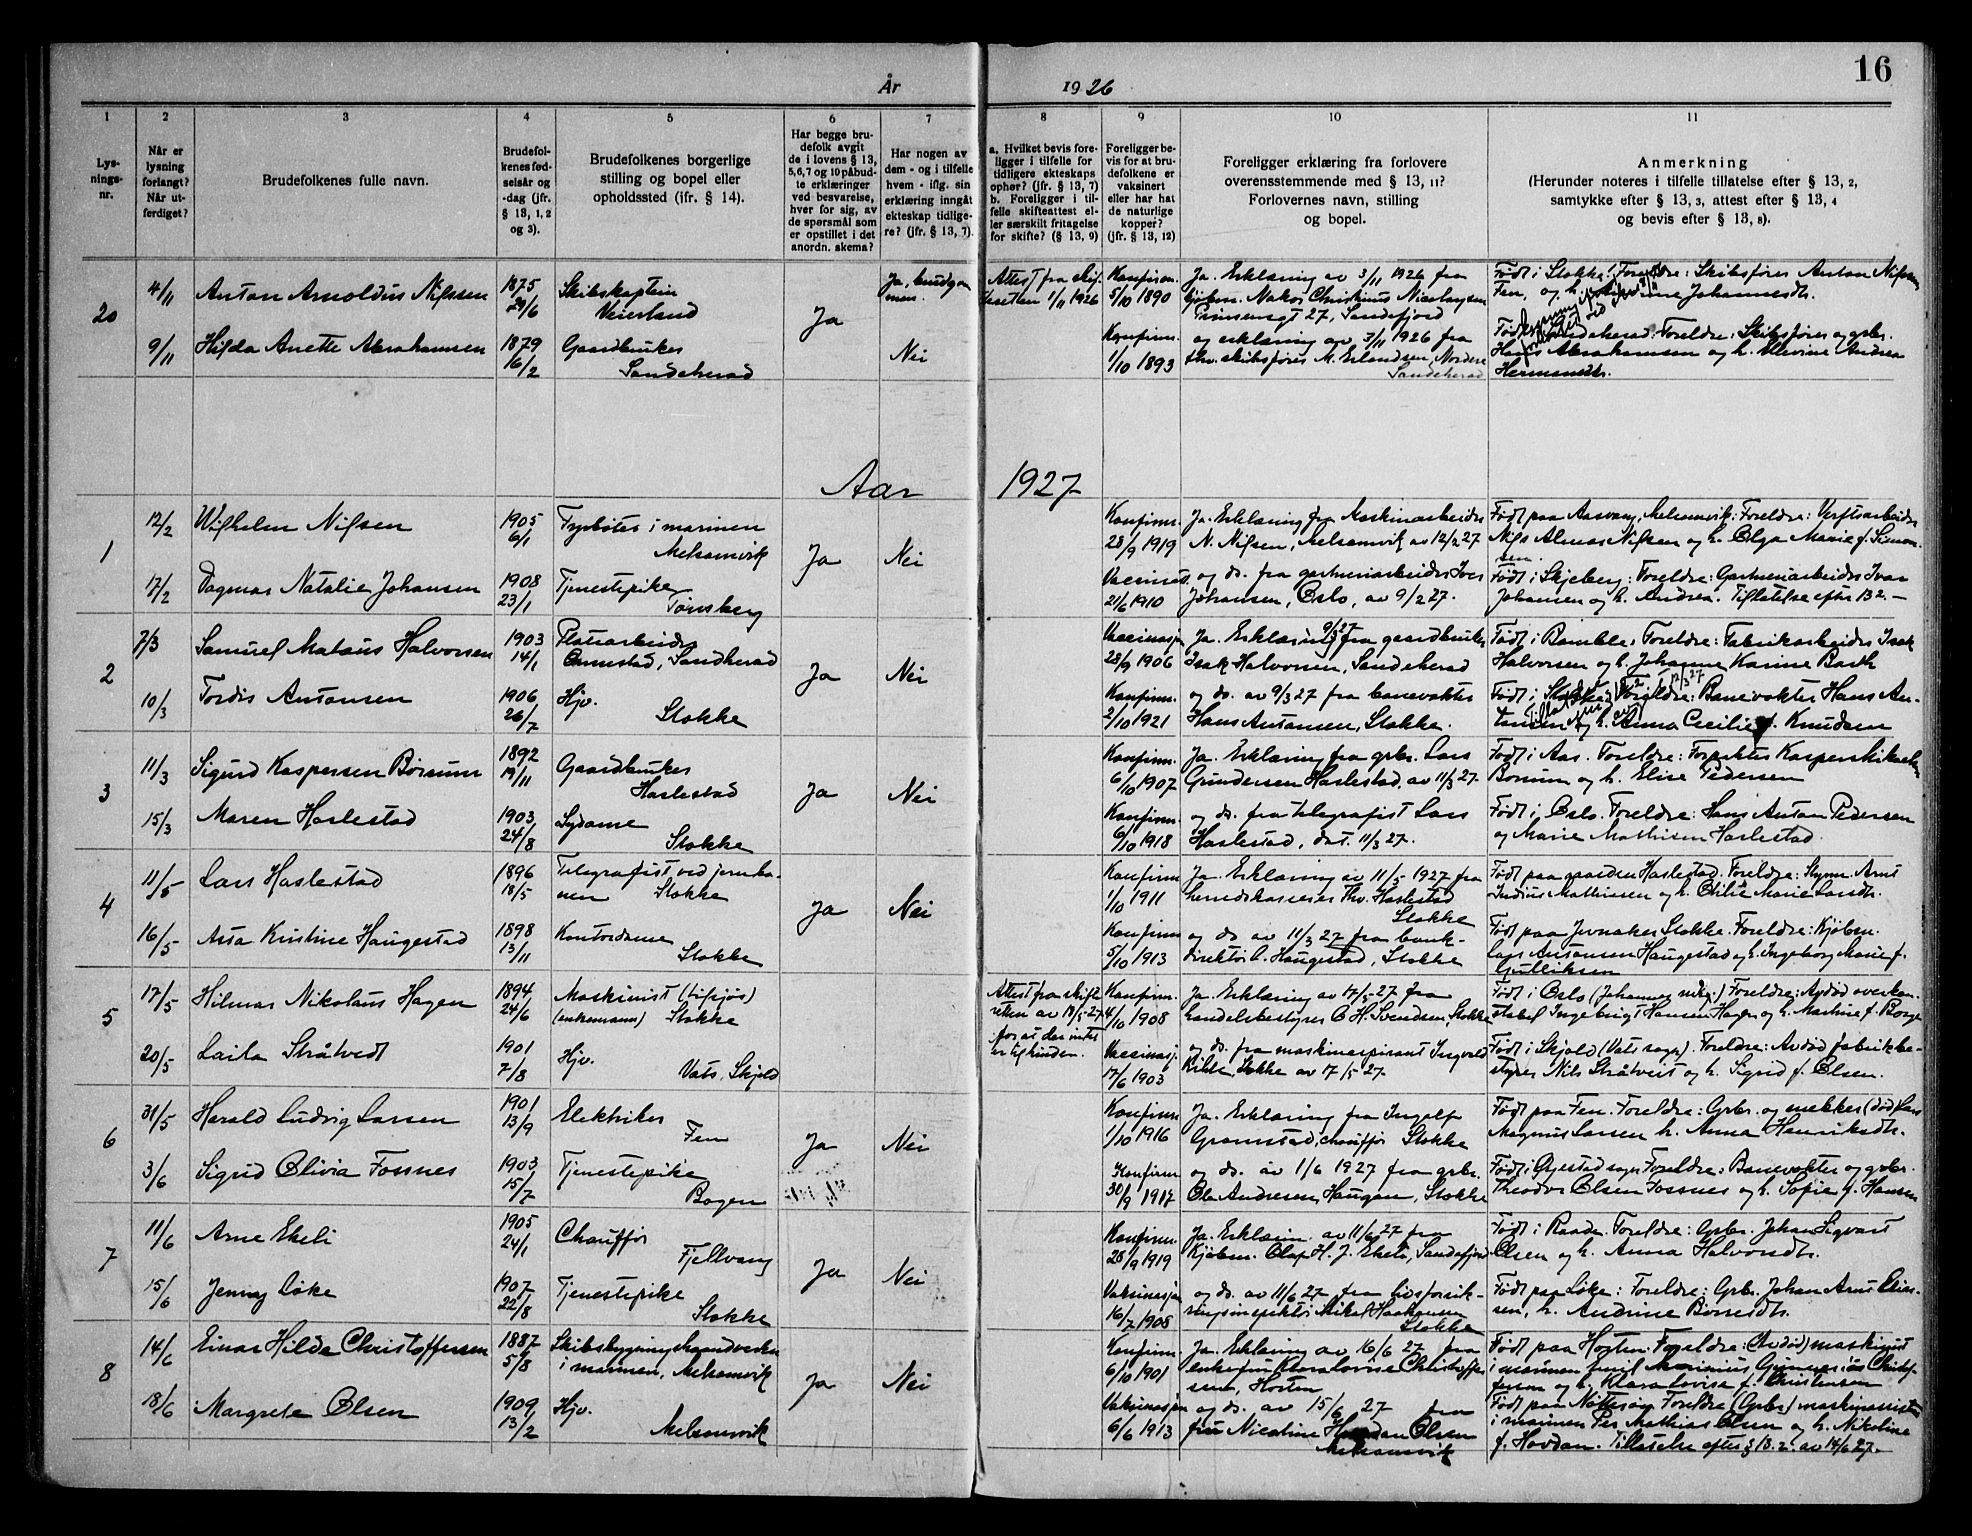 År 1926
16
1 2 3 4 5 6 7 8 9 10 11
Lys-
nings-
nr.
Når er
lysning
forlangt?
Når ut-
ferdiget?
Brudefolkenes fulle navn.
Brudefol-
kenes fød-
selsår og
-dag (jfr.
§ 13, 1, 2
og 3).
Brudefolkenes borgerlige
stilling og bopel eller
opholdssted (jfr. § 14).
Har begge bru-
defolk avgit
de i lovens § 13,
5, 6, 7 og 10 påbud-
te erklæringer
ved besvarelse,
hver for sig, av
de spørsmål som
er opstillet i det
anordn. skema?
Har nogen av
dem - og i tilfelle
hvem - iflg. sin
erklæring inngåt
ekteskap tidlige-
re? (jfr. § 13, 7).
a. Hvilket bevis fore-
ligger i tilfelle for
tidligere ekteskaps
ophør? (jfr. § 13, 7)
b. Foreligger i til-
felle skifteattest el-
ler særskilt fritagelse
for skifte? (§ 13, 9)
Foreligger be-
vis for at bru-
defolkene er
vaksinert
eller har hat
de naturlige
kopper?
(jfr. § 13, 12)
Foreligger erklæring fra forlovere
overensstemmende med § 13, 11?
Forlovernes navn, stilling
og bopel.
Anmerkning
(Herunder noteres i tilfelle tillatelse efter § 13, 2,
samtykke efter § 13, 3, attest efter § 13, 4
og bevis efter § 13, 8).
20
4/11 Anton Arnoldus Nilssen 1875 29/6 Skibskaptein
Veierland
Ja
Ja, brudgom-
men.
Attest fra skif-
teretten 1/11 1926
Konfirm.
5/10 1890
Ja. Erklæring av 3/11 1926 fra
kjøbm. Nakor Christinus Nicolaysen
Prinsensgt 27, Sandefjord
Født i Stokke. Foreldre: Skibsfører Anton Nilssen
Fen, og h. Johannesdt.
9/11 Hilda Anette Abrahamsen 1879 16/2 Gaardbruker
Sandeherad
Nei
Konfirm.
1/10 1893
og erklæring av 3/11 1926 fra
fhv. skibsfører M. Erlandsen, Nordre
Sandeherad
Født i Sandeherad. Foreldre: Skibsfører og gbr.
Hans Abrahamsen og h. Allevine Andrea
Hermansdt.
Aar 1927
1
12/2 Wilhelm Nilsen 1905 6/1 Fyrbøter i marinen
Melsomvik
Ja Nei
Konfirm.
28/9 1919
Ja. Erklæring fra Maskinarbeider
N. Nilsen, Melsomvik av 12/2 27
Født paa Aasvang, Melsomvik: Foreldre: Verftsarbeider
Nils Almar Nilsen og h. Olga Marie f. Simon-
sen.
17/2 Dagmar Natalie Johansen 1908 23/1 Tjenestepike
Tønsberg
Vaccinert
21/6 1910
og do. fra gartneriarbeider Iver
Johansen, Oslo, av 9/2 27.
Født i Skjeberg: Foreldre: Gartneriarbeider Ivar
Johansen og h. Andrea. Tillatelse efter 13 2. —
2
7/3 Samuel Mataus Halvorsen 1903 14/1 Platearbeider
Sandherad
Ja Nei
Vaccinasjon
28/9 1906
Ja. Erklæring 9/3 27 fra gaardbruker
Isak Halvorsen, Sandeherad
Født i Bamble, Foreldre: Fabrikarbeider Isak
Halvorsen og h. Johanne Karine Barth
10/3 Tordis Antonsen 1906 26/7 Hjv.
Stokke
Konfirm.
2/10 1921
og do. av 9/3 27 fra banevokter
Hans Antonsen, Stokke.
Født i Stokke. Foreldre: Banevokter Hans An-
tonsen og h. Anna Cecilie f. Knudsen
12/3 27
3
11/3 Sigurd Kaspersen Børsum 1892 19/11 Gaardbruker
Haslestad
Ja Nei
Konfirm.
6/10 1907
Ja. Erklæring fra gbr. Lars
Gundersen Haslestad, av 11/3 27.
Født i Aas. Foreldre: Forpakter Kasper
Borsum og h. Elise Pedersen
15/3 Maren Haslestad 1903 24/8 Sydame
Stokke
Konfirm.
6/10 1918
og do. fra telegrafist Lars
Haslestad, dat. 11/3 27.
Født i Oslo. Foreldre: Hans Anton Pedersen
og Marie Mathisen Haslestad.
4
11/5 Lars Haslestad 1896 18/5 Telegrafist ved jernba-
nen Stokke
Ja Nei
Konfirm
1/10 1911
Ja. Erklæring av 11/5 1927 fra
herredskasserer Thv. Haslestad
Stokke
Født paa gaarden Haslestad. Foreldre: Arnt
Mathiasen og h. Otilie Marie Larsdt.
16/5 Asta Kristine Haugestad 1898 13/11 Kontordame
Stokke
Konfirm
5/10 1913
og do av 11/3 27 fra bank-
direktør L. Haugestad, Stokke
Født paa Jernaker Stokke. Foreldre: Kjøbm.
Lars Antonsen Haugestad og h. Ingeborg Marie f.
Gulliksen
5
17/5 Hilmar Nikolaus Hagen 1894 24/6 Maskinist (tilsjøs)
(enkemann) Stokke
Attest fra skifte-
retten av 18/5 27
for at der intet
er til hinder.
Konfirm.
4/10 1908
Ja. Erklæring av 17/5 27 fra
handelsbestyrer C. H. Svendsen, Stokke
Født i Oslo (Johannes menig.) Foreldre: Avdød overkon-
stabel Ingebrigt Hansen Hagen og h. Martine f. Borge
20/5 Laila Stråtvedt 1901 7/8 Hjv.
Vats, Skjold
Vaccinasj.
17/6 1903
og do. fra maskinaspirant Ingvald
Stokke av 17/5 27.
Født i Skjold (Vats sogn). Foreldre: Avdød fabrikbe-
styrer Nils Stråtveit og h. Sigrid f. Olsen.
6
31/5 Harald Ludvig Larsen 1901 13/9 Elektriker
Fen
Ja Nei
Konfirm
1/10 1916
Ja. Erklæring fra Ingolf
Gromstad, chauffør Stokke
Født paa Fen. Foreldre: Gbr. og snekker (død) Lars
Magnus Larsen h. Anna Henriksdt.
3/6 Sigrid Olivia Fossnes 1903 15/7 Tjenestepike
Bogen
Konfirm
30/9 1917
og do. av 1/6 1927 fra gbr.
Ole Andresen Haugan, Stokke
Født i Øyestad sogn Foreldre: Banevokter og gbr.
Theodor Olsen Fossnes og h. Sofie f. Hansen
7
11/6 Arne Ekeli 1905 24/1 Chauffør
Fjellvang
Ja Nei
Konfirm.
28/9 1919
Ja. Erklæring av 11/6 27 fra
Kjøbm. Olaf H. J. Ekeli, Sandefjord
Født i Raade. Foreldre: Gbr. Johan Sigvart
Olsen og h. Anna Halvorsdt.
15/6 Jenny Løke 1907 22/8 Tjenestepike
Stokke
Vaksinasjon
16/7 1908
og do. av 11/6 27 fra livsforsik-
ringsinspektør Mikal Haakonsen
Stokke
Født paa Løke: Foreldre: Gbr. Johan Arnt
h. Andrine
8
14/6 Einar Hilde Christoffersen 1887 5/8 Skibsbygningshaandverker
i marinen, Melsomvik
Ja Nei
Konfirm
6/10 1901
Ja. Erklæring av 16/6 27 fra
enkefru Klara Lovise Christoffer-
sen, Horten
Født paa Horten. Foreldre: (Avdød) maskinist
i marinen Emil Marinius Gunnerius Christof-
fersen og h. Klara Lovise f. Christensen
18/6 Margrete Olsen 1909 13/2 Hjv.
Melsomvik
Vaksinasjon
6/6 1913
og do. av 15/6 27 fra
fru Nicoline Hovdan Olsen
Melsomvik
Født paa Nøtterøy Foreldre (Gbr.) maskinassistent
i marinen Per Mathias Olsen og h. Nikoline
f. Hovdan. Tillatelse efter § 13. 2. av 14/6 27.